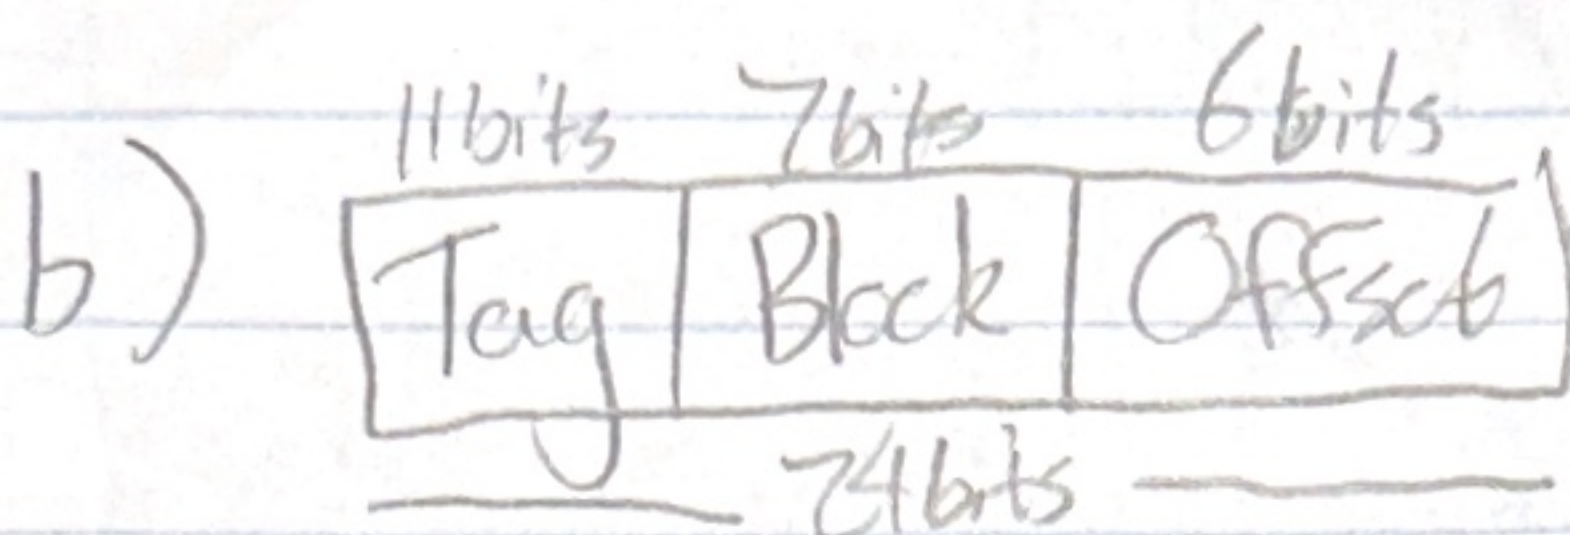 11bits 7bits 6bits
b) Tag Block Offset
24bits